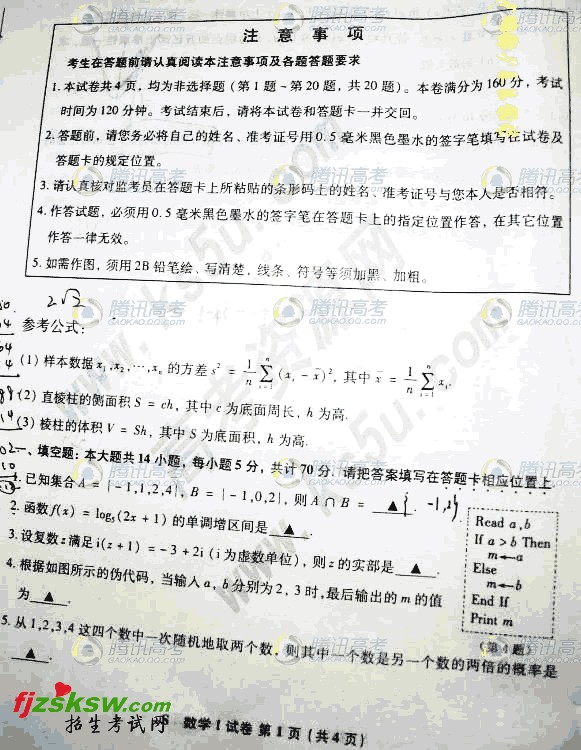 注意事项
考生在答题前请认真阅读本注意事项及各题答题要求
1. 本试卷共4页，均为非选择题（第1题～第20题，共20题）。本卷满分为160分，考试
时间为120分钟。考试结束后，请将本试卷和答题卡一并交回。
2. 答题前，请您务必将自己的姓名、准考证号用0.5毫米黑色墨水的签字笔填写在试卷及
答题卡的规定位置。
3. 请认真核对监考员在答题卡上所粘贴的条形码上的姓名、准考证号与您本人是否相符。
4. 作答试题，必须用0.5毫米黑色墨水的签字笔在答题卡上的指定位置作答，在其它位置
作答一律无效。
5. 如需作图，须用2B铅笔绘、写清楚，线条、符号等须加黑、加粗。
2√2
参考公式：
(1) 样本数据 x₁,x₂,…,xₙ 的方差 s² = 1/n ∑ᵢ₌₁ⁿ (xᵢ - x̄)²，其中 x̄ = 1/n ∑ᵢ₌₁ⁿ xᵢ.
(2) 直棱柱的侧面积 S = ch，其中 c 为底面周长，h 为高.
(3) 棱柱的体积 V = Sh，其中 S 为底面面积，h 为高.
一、填空题：本大题共14小题，每小题5分，共计70分. 请把答案填写在答题卡相应位置上.
1. 已知集合 A = {-1,1,2,4}, B = {-1,0,2}, 则 A ∩ B = ▲ . {-1,2}
2. 函数 f(x) = log₅(2x + 1) 的单调增区间是 ▲ .
3. 设复数 z 满足 i(z + 1) = -3 + 2i (i 为虚数单位)，则 z 的实部是 ▲ .
4. 根据如图所示的伪代码，当输入 a, b 分别为 2, 3 时，最后输出的 m 的值
为 ▲ .
Read a,b
If a > b Then
m←a
Else
m←b
End If
Print m
（第4题）
5. 从 1,2,3,4 这四个数中一次随机地取两个数，则其中一个数是另一个数的两倍的概率是
▲ .
数学Ⅰ试卷 第1页（共4页）
fjzsksw.com
招生考试网
腾讯高考
GAOKAO.QQ.COM
高考资源网
www.ks5u.com